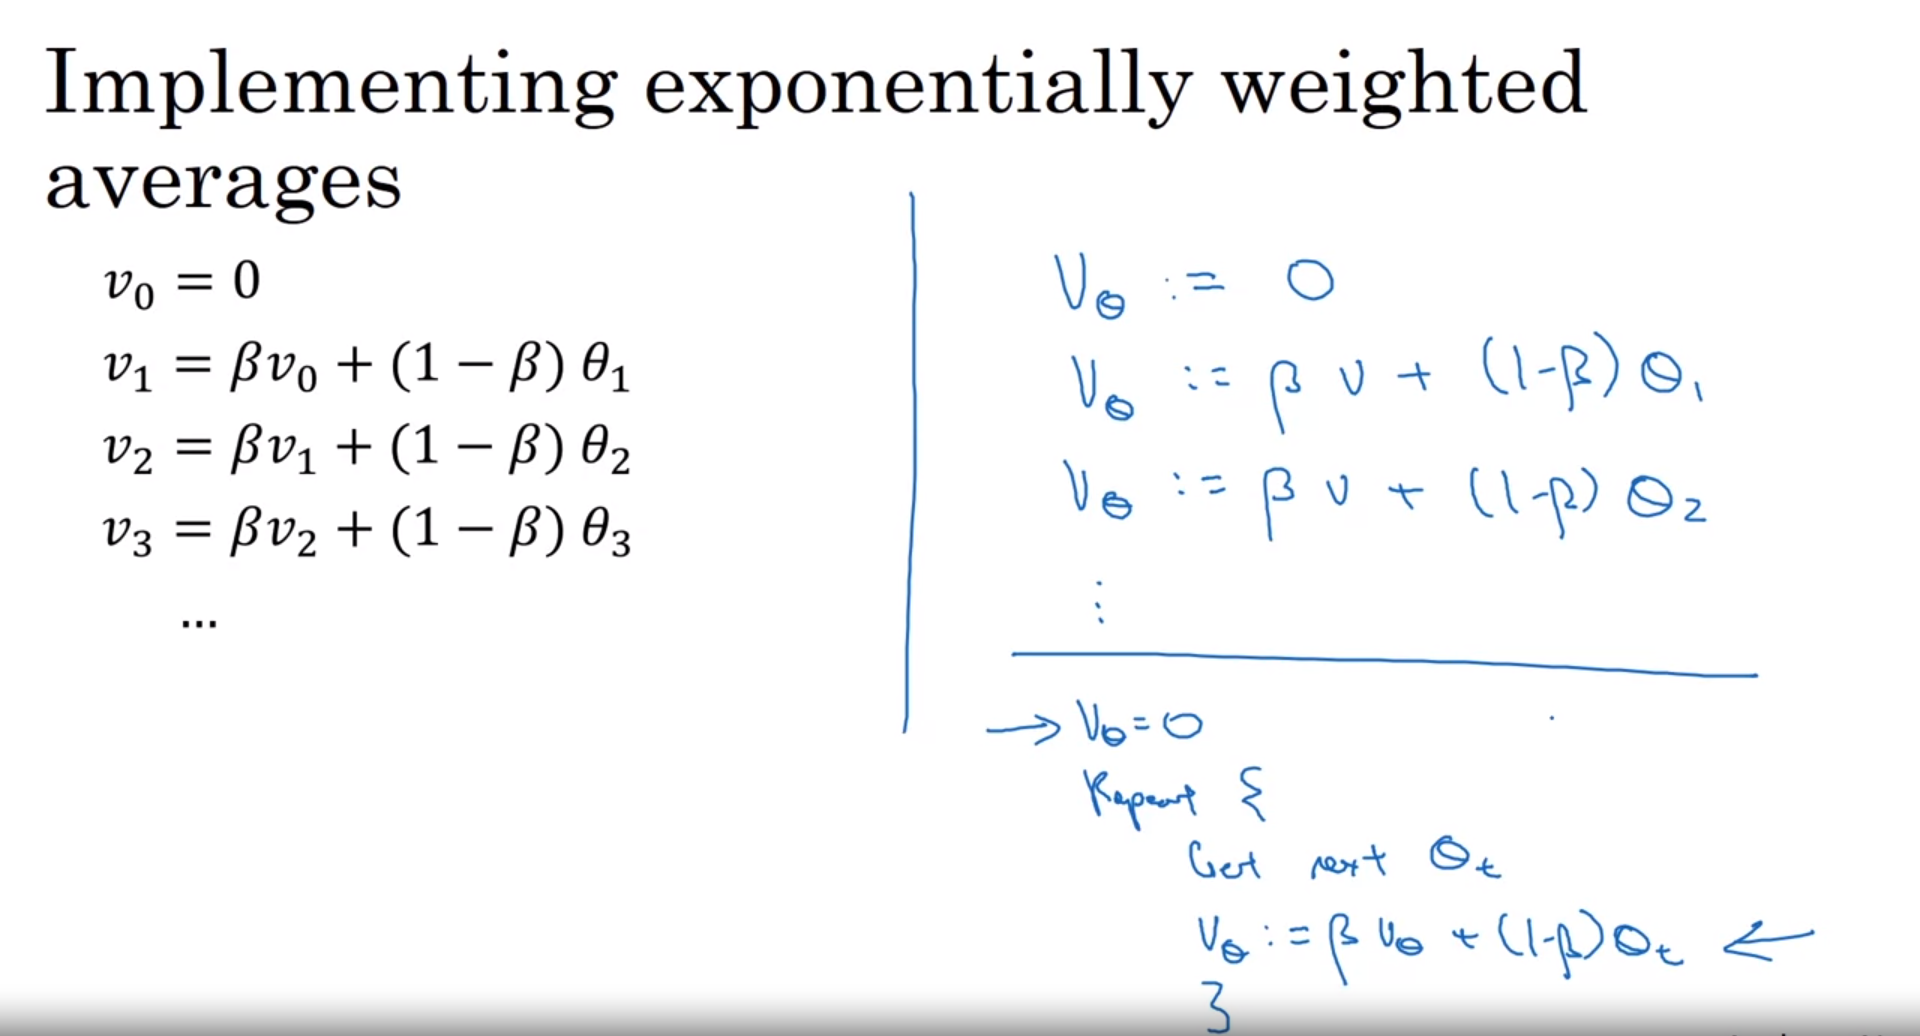 Implementing exponentially weighted
averages
v₀ = 0
v₁ = βv₀ + (1 − β) θ₁
v₂ = βv₁ + (1 − β) θ₂
v₃ = βv₂ + (1 − β) θ₃
...
V_θ := 0
V_θ := β v + (1-β) θ₁
V_θ := β v + (1-β) θ₂
⋮
→ V_θ = 0
Repeat {
Get next θ_t
V_θ := β V_θ + (1-β) θ_t ←
}